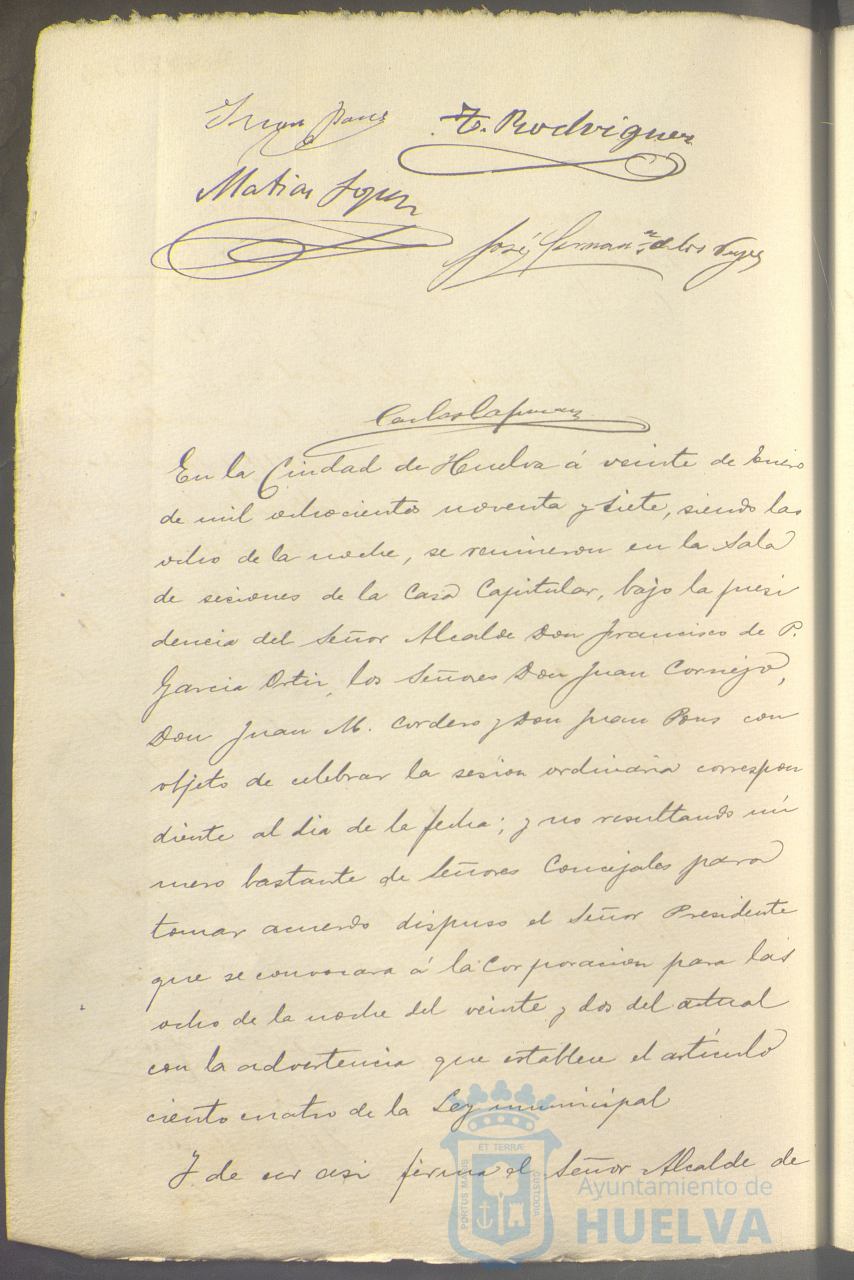 Juan Pons
T. Rodriguez
Matias Lopez
José Hernan.n de los Reyes
En la Ciudad de Huelva á veinte de Enero
de mil ochocientos noventa y siete, siendo las
ocho de la noche, se reunieron en la Sala
de sesiones de la Casa Capitular, bajo la presi
dencia del Señor Alcalde Don Francisco de P.
Garcia Ortiz, los Señores Don Juan Cornejo,
Don Juan M. Cordero y Don Juan Pons con
objeto de celebrar la sesion ordinaria correspon
diente al dia de la fecha; y no resultando nú
mero bastante de Señores Concejales para
tomar acuerdo dispuso el Señor Presidente
que se convocara á la Corporacion para las
ocho de la noche del veinte y dos del actual
con la advertencia que establece el artículo
ciento cuatro de la Ley municipal
Y de ser asi firma el Señor Alcalde de
ET TERRÆ
PORTUS MARIS
CUSTODIA
Ayuntamiento de
HUELVA